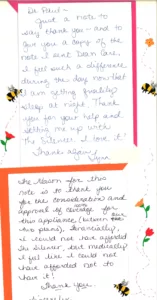 Dr. Paul –
Just a note to
say thank you – and to
give you a copy of the
note I sent Dean Care.
I feel such a difference
during the day now that
I am getting quality
sleep at night. Thank
you for your help and
setting me up with
the Silencer. I love it!
Thanks again,
The reason for this
note is to thank you
for the consideration and
approval of coverage for
this appliance (between
two plans). Financially
I could not have afforded
the Silencer, but medically
I feel like I could not
have afforded not to
have it!
Thank you,